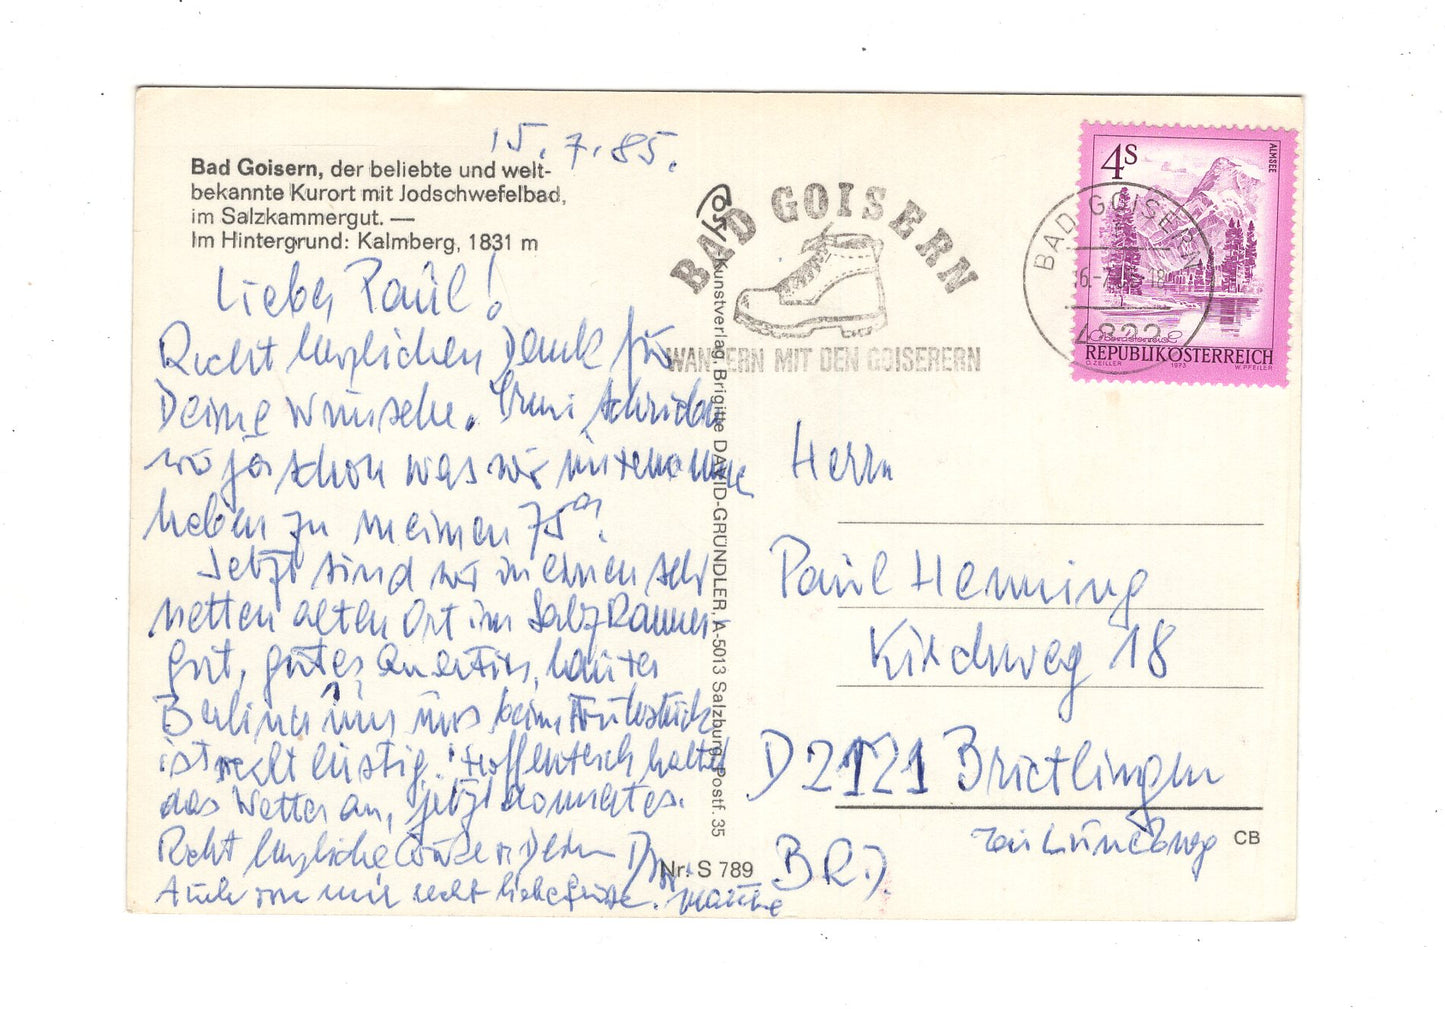 15.7.85.
Bad Goisern, der beliebte und welt-
bekannte Kurort mit Jodschwefelbad,
im Salzkammergut. —
Im Hintergrund: Kalmberg, 1831 m
Lieber Paul!
Recht herzlichen Dank für
Deine Wünsche. Irmi schrieb
wo ja schon was wir
haben zu meinem 75
Jetzt sind wir in einem sehr
netten alten Ort im Salzkammer-
gut, gutes Quartier, lauter
Berliner um uns beim Frühstück
ist recht lustig. Hoffentlich haltet
das Wetter an, jetzt
Recht herzliche Grüße Dein
Auch von mir recht liebe Grüße.
BAD GOISERN
WANDERN MIT DEN GOISERERN
Kunstverlag, Brigitte DAVID-GRÜNDLER, A-5013 Salzburg, Postf. 35
Nr. S 789
4S
ALMSEE
BAD GOISERN
4822
Oberösterreich
REPUBLIK ÖSTERREICH
O. ZEILLER 1973 W. PFEILER
Herrn
Paul Henning
Kirchweg 18
D 2121 Brietlingen
bei Lüneburg
BRD.
CB